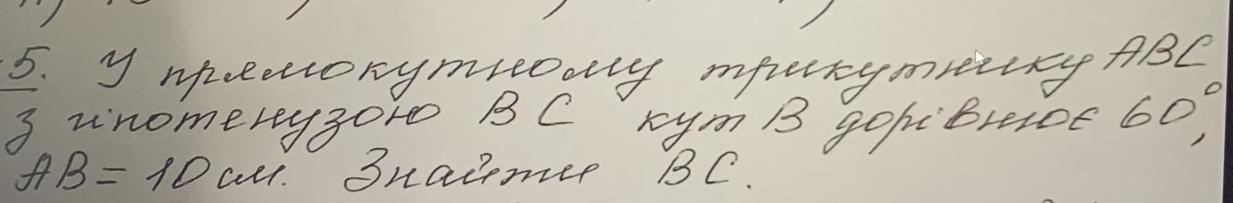 5. У прямокутному трикутнику ABC
з гіпотенузою BC кут B дорівнює 60°,
AB = 10 см. Знайти BC.